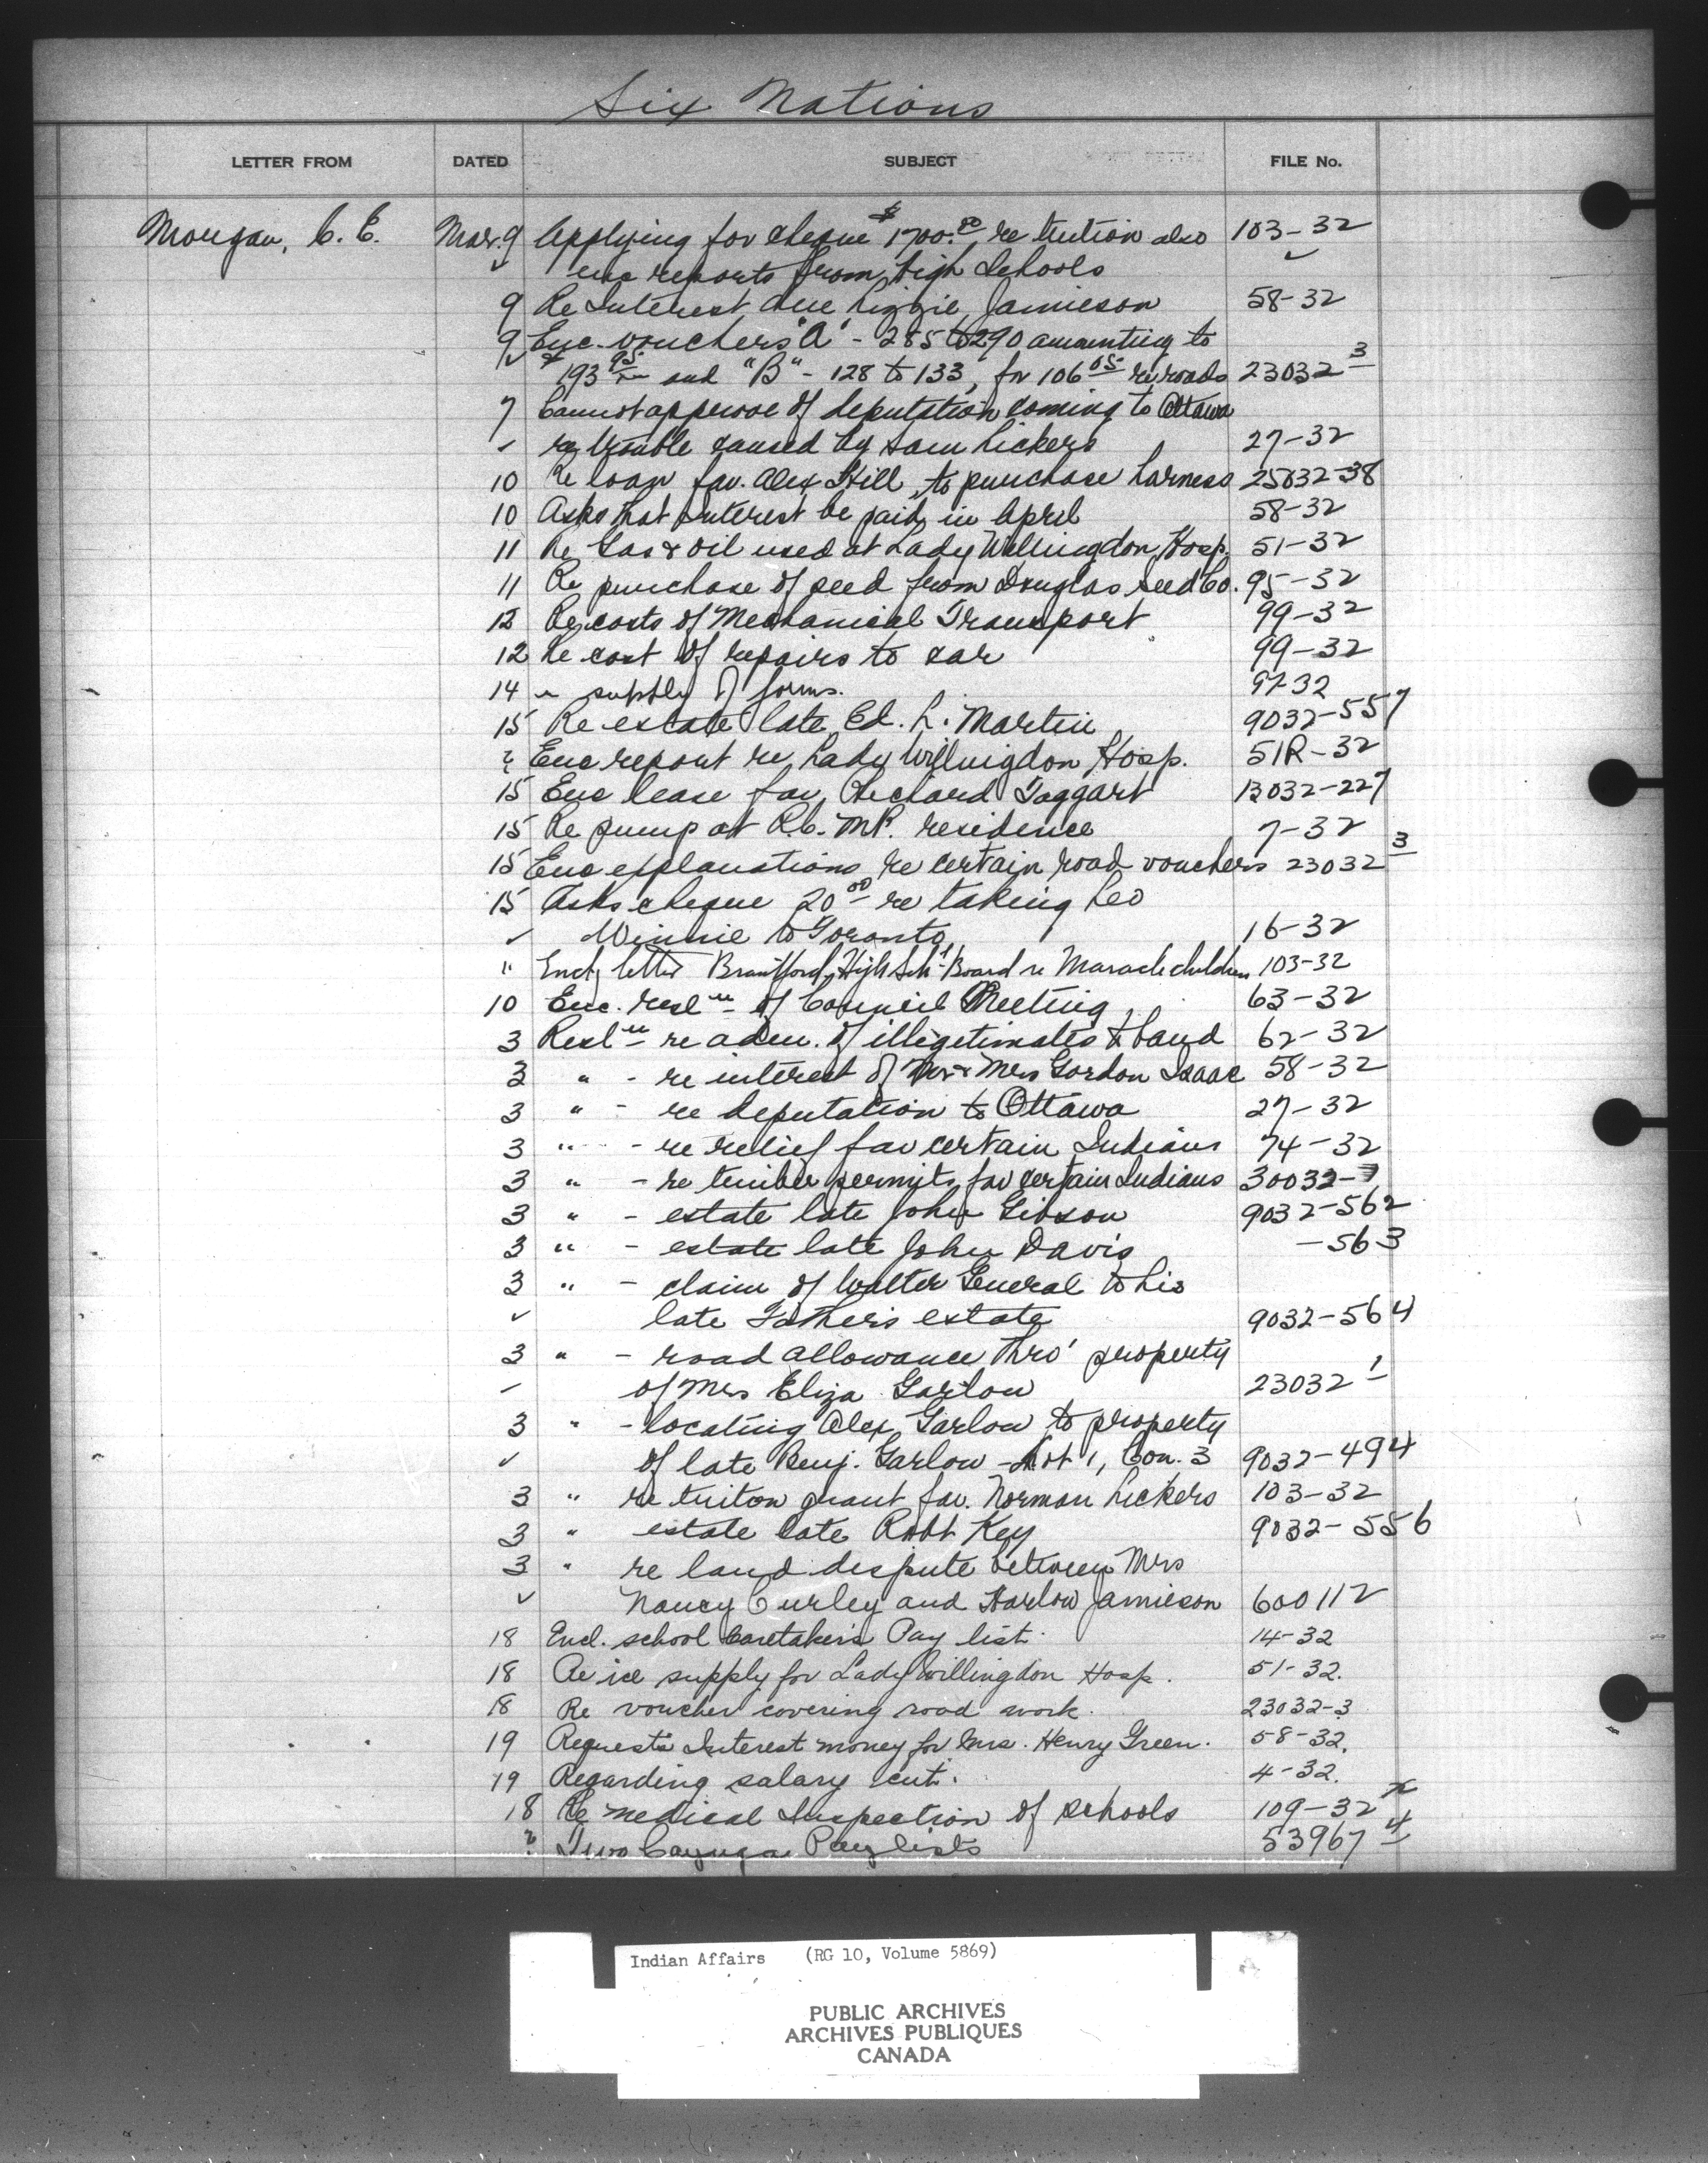 Six Nations
LETTER FROM DATED SUBJECT FILE No.
Morgan, C. E. Mar. 9 Applying for cheque $1700.00 re tuition also 103-32
✓ enc reports from High Schools ✓
9 Re Interest due Lizzie Jamieson 58-32
9 Enc. vouchers "A" - 285 to 290 amounting to
✓ $193 95 and "B" - 128 to 133, for 106 05 re roads 23032 3
7 Cannot approve of deputation coming to Ottawa
✓ re trouble caused by Sam Lickers 27-32
10 Re loan fav. Alex Hill, to purchase harness 25032-38
10 Asks that interest be paid in April 58-32
11 Re Gas & oil used at Lady Willingdon Hosp. 51-32
11 Re purchase of seed from Douglas Seed Co. 95-32
12 Re costs of Mechanical Transport 99-32
12 Re cost of repairs to car 99-32
14 " supply of forms. 97-32
15 Re estate late Ed. L. Martin 9032-557
? Enc report re Lady Willingdon Hosp. 51R-32
15 Enc lease fav. Richard Taggart 13032-227
15 Re pump at R.C.M.P. residence 7-32
15 Enc explanations re certain road vouchers 23032 3
15 Asks cheque 20 00 re taking Leo
✓ Winnie to Toronto 16-32
" Encl'g letter Brantford High Sch'l Board re Maracle children 103-32
10 Enc. resl'n of Council Meeting 63-32
3 Resl'n re adm. of illegitimates & band 62-32
3 " - re interest of Mr & Mrs Gordon Isaac 58-32
3 " - re deputation to Ottawa 27-32
3 " - re relief fav certain Indians 74-32
3 " - re timber permits fav certain Indians 30032-7
3 " - estate late John Gibson 9032-562
3 " - estate late John Davis -563
3 " - claim of Walter General to his
✓ late Father's estate 9032-564
3 " - road allowance thro' property
✓ of Mrs Eliza Garlow 23032 1
3 " - locating Alex Garlow to property
✓ of late Benj. Garlow - Lot 1, Con. 3 9032-494
3 " re tuiton grant fav. Norman Lickers 103-32
3 " estate late Robt Key 9032-556
3 " re land dispute between Mrs
✓ Nancy Curley and Harlow Jamieson 600112
18 Encl. school Caretakers Pay list. 14-32
18 Re ice supply for Lady Willingdon Hosp. 51-32.
18 Re voucher covering road work. 23032-3
19 Requests Interest money for Mrs. Henry Green. 58-32.
19 Regarding salary cut. 4-32.
18 Re medical Inspection of schools 109-32
? Two Cayuga Pay lists 53967 4
Indian Affairs (RG 10, Volume 5869)
PUBLIC ARCHIVES
ARCHIVES PUBLIQUES
CANADA